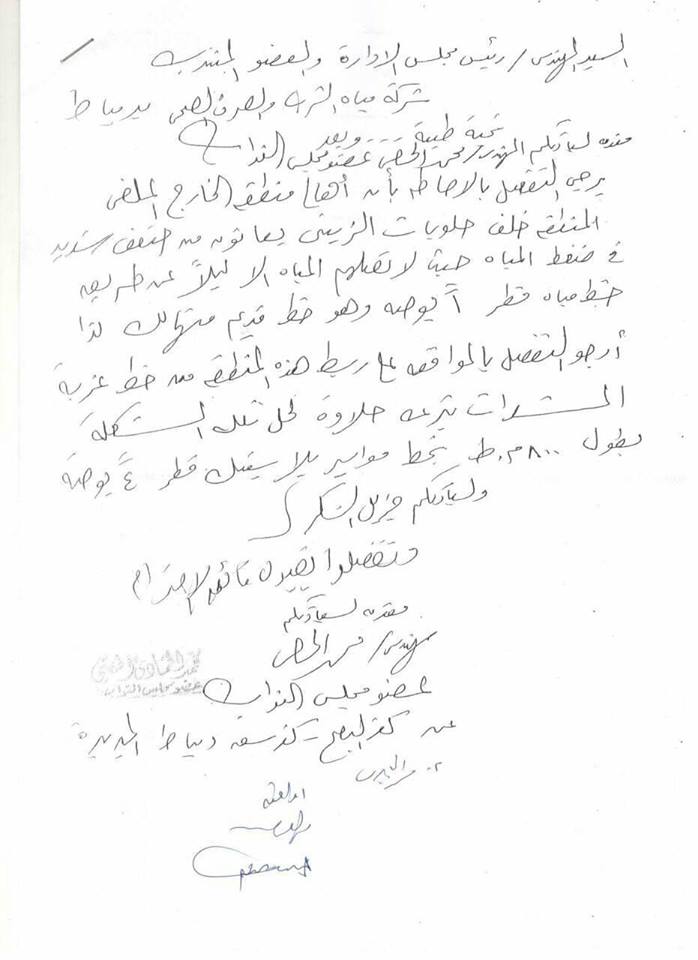 السيد المهندس / رئيس مجلس الادارة والعضو المنتدب
شركة مياه الشرب والصرف الصحى بدمياط
تحية طيبة ... وبعد
مقدمه لسيادتكم المهندس / محمد الحصى عضو مجلس النواب
يرجى التفضل بالاحاطه بأن أهالى منطقه الخارج الملضى
المنطقه خلف حلويات الزينى يعانون من ضعف شديد
فى ضغط المياه حيث لا تصلهم المياه الا ليلاً عن طريق
خط مياه قطر ١ً بوصه وهو خط قديم متهالك لذا
أرجو التفضل بالموافقه على ربط هذه المنطقه من خط عزبة
بترعه حلاوة لحل تلك المشكلة
بطول ٨٠٠ م.ط بخط مواسير بلاستيك قطر ٤ً بوصة
ولسيادتكم جزيل الشكر
وتفضلوا بقبول فائق الاحترام
مقدمه لسيادتكم
مهندس / محمد الحصى
عضو مجلس النواب
عن كفر البطيخ - كفر سعد دمياط الجديدة
عضو مجلس النواب